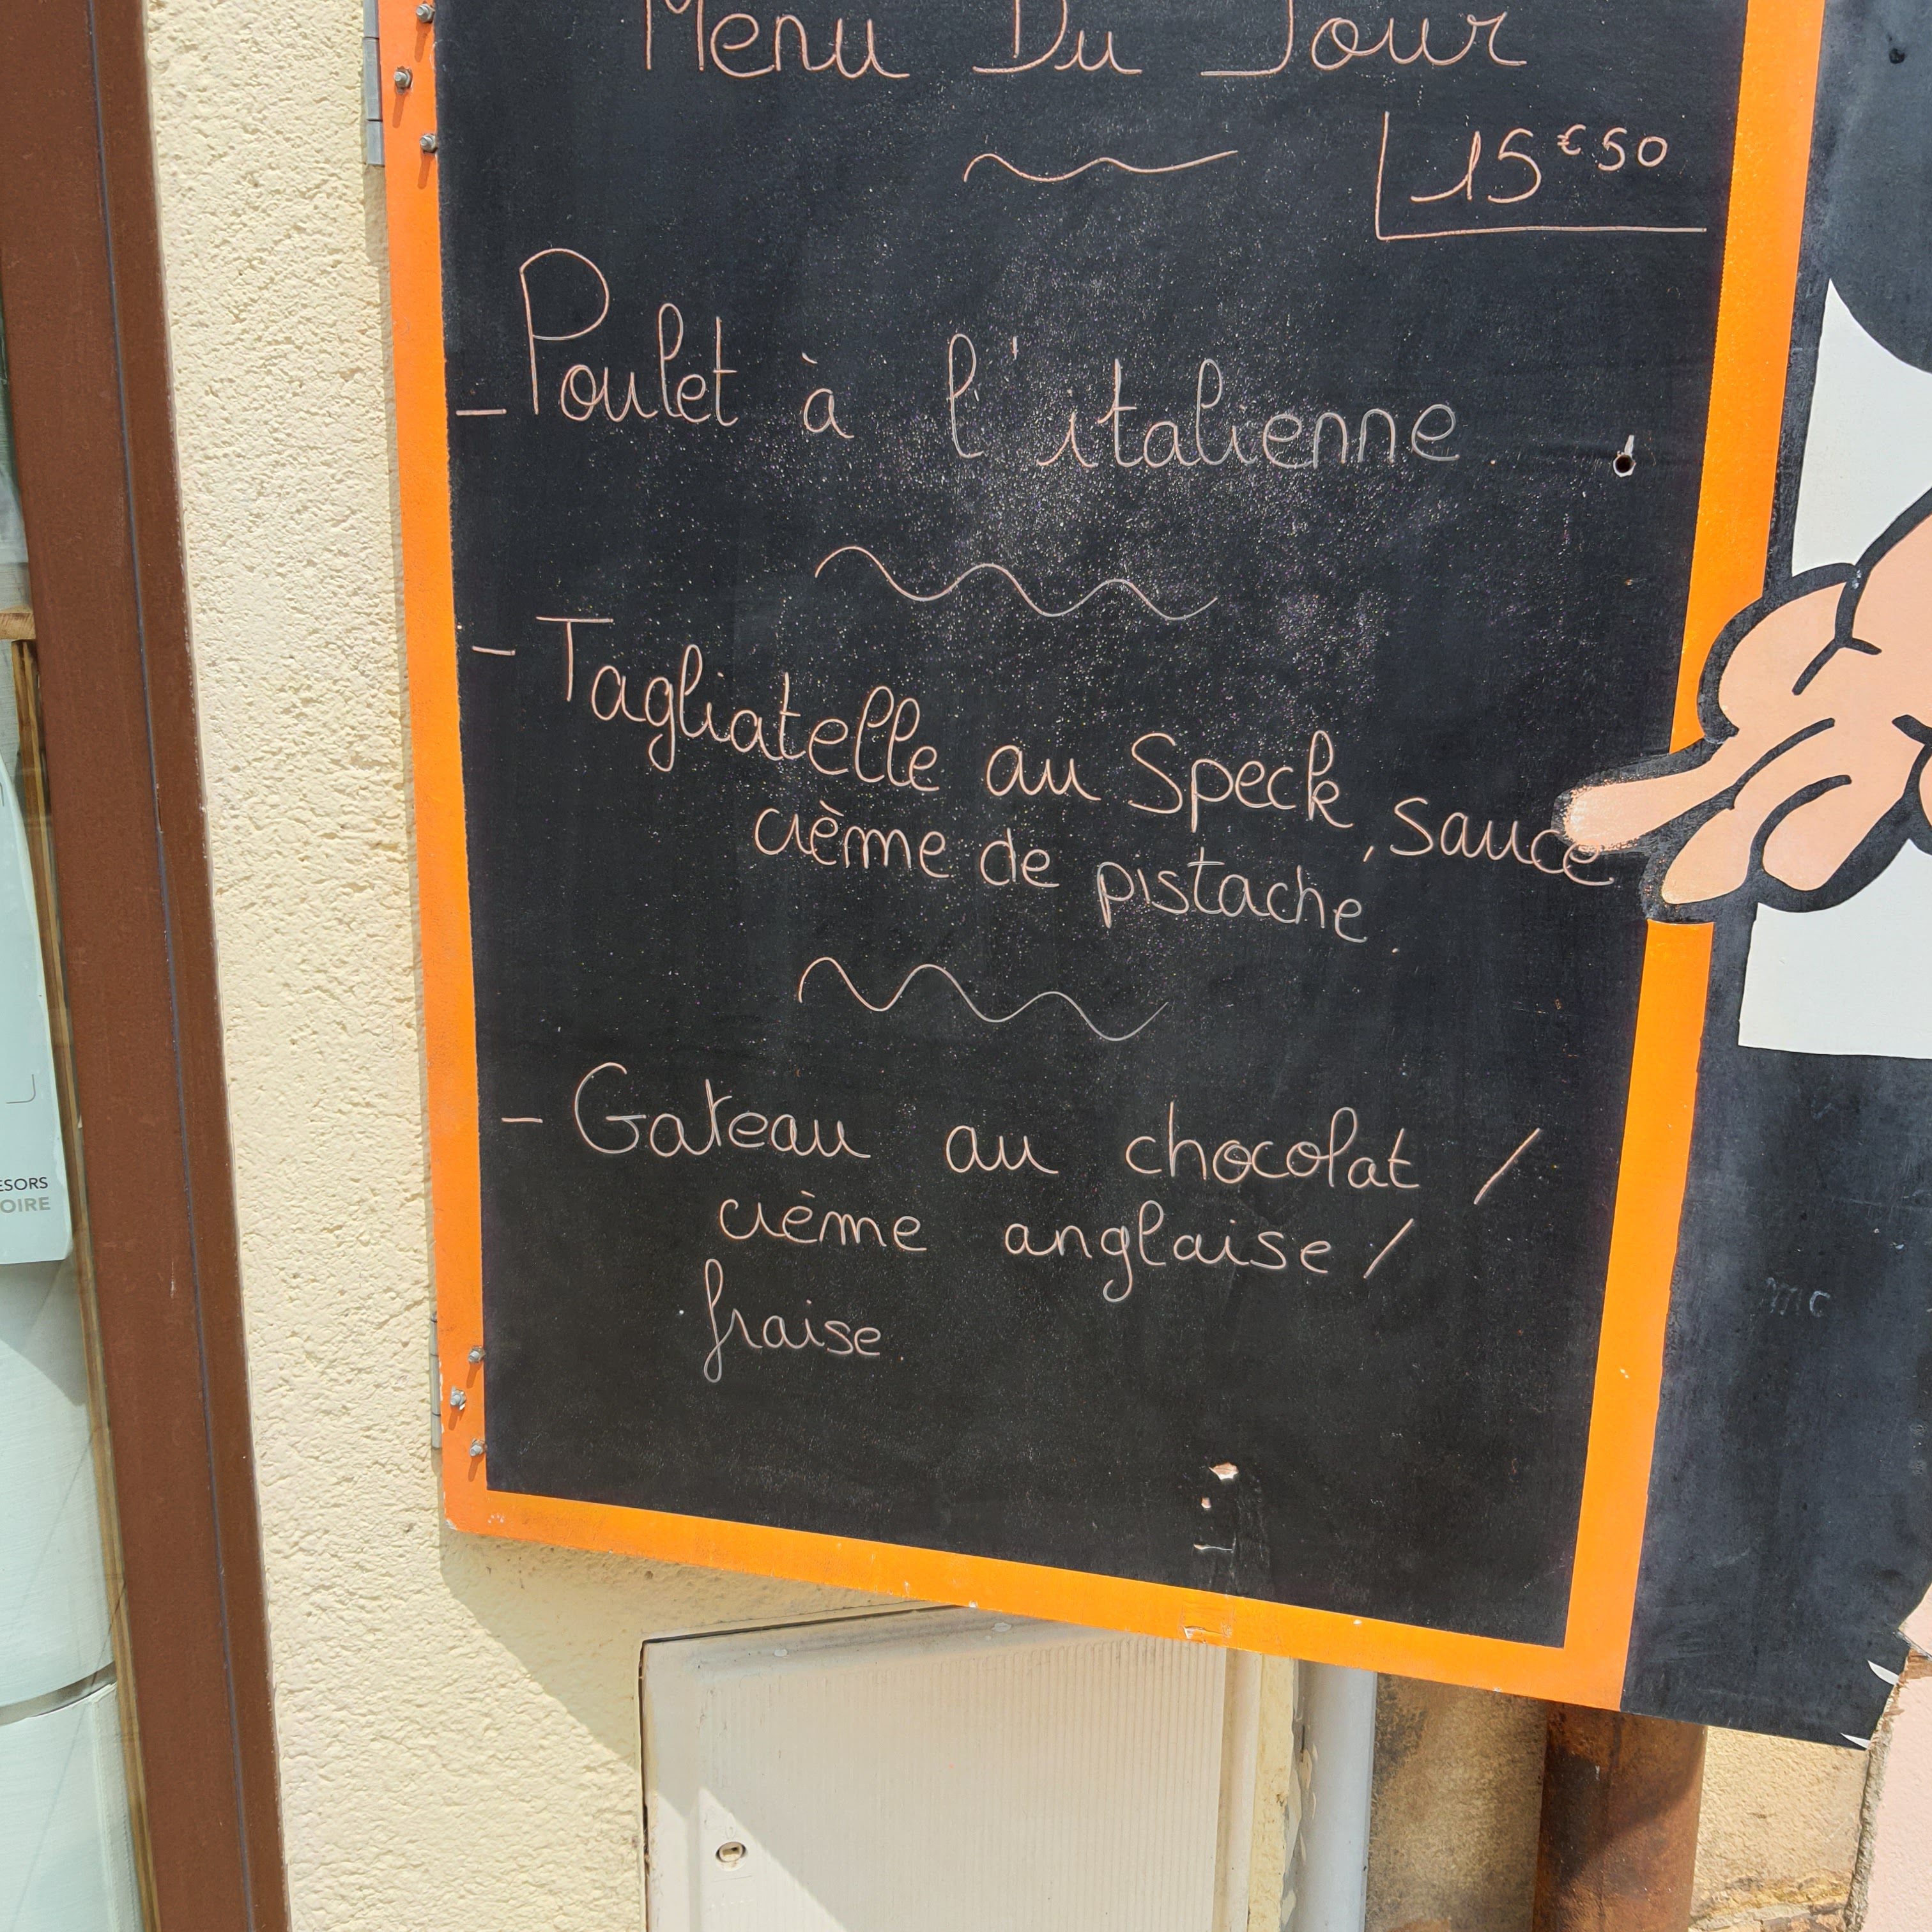 Menu Du Jour
15€50
- Poulet à l'italienne
- Tagliatelle au Speck, sauce
crème de pistache.
- Gateau au chocolat /
crème anglaise /
fraise.
ESORS
OIRE
mc